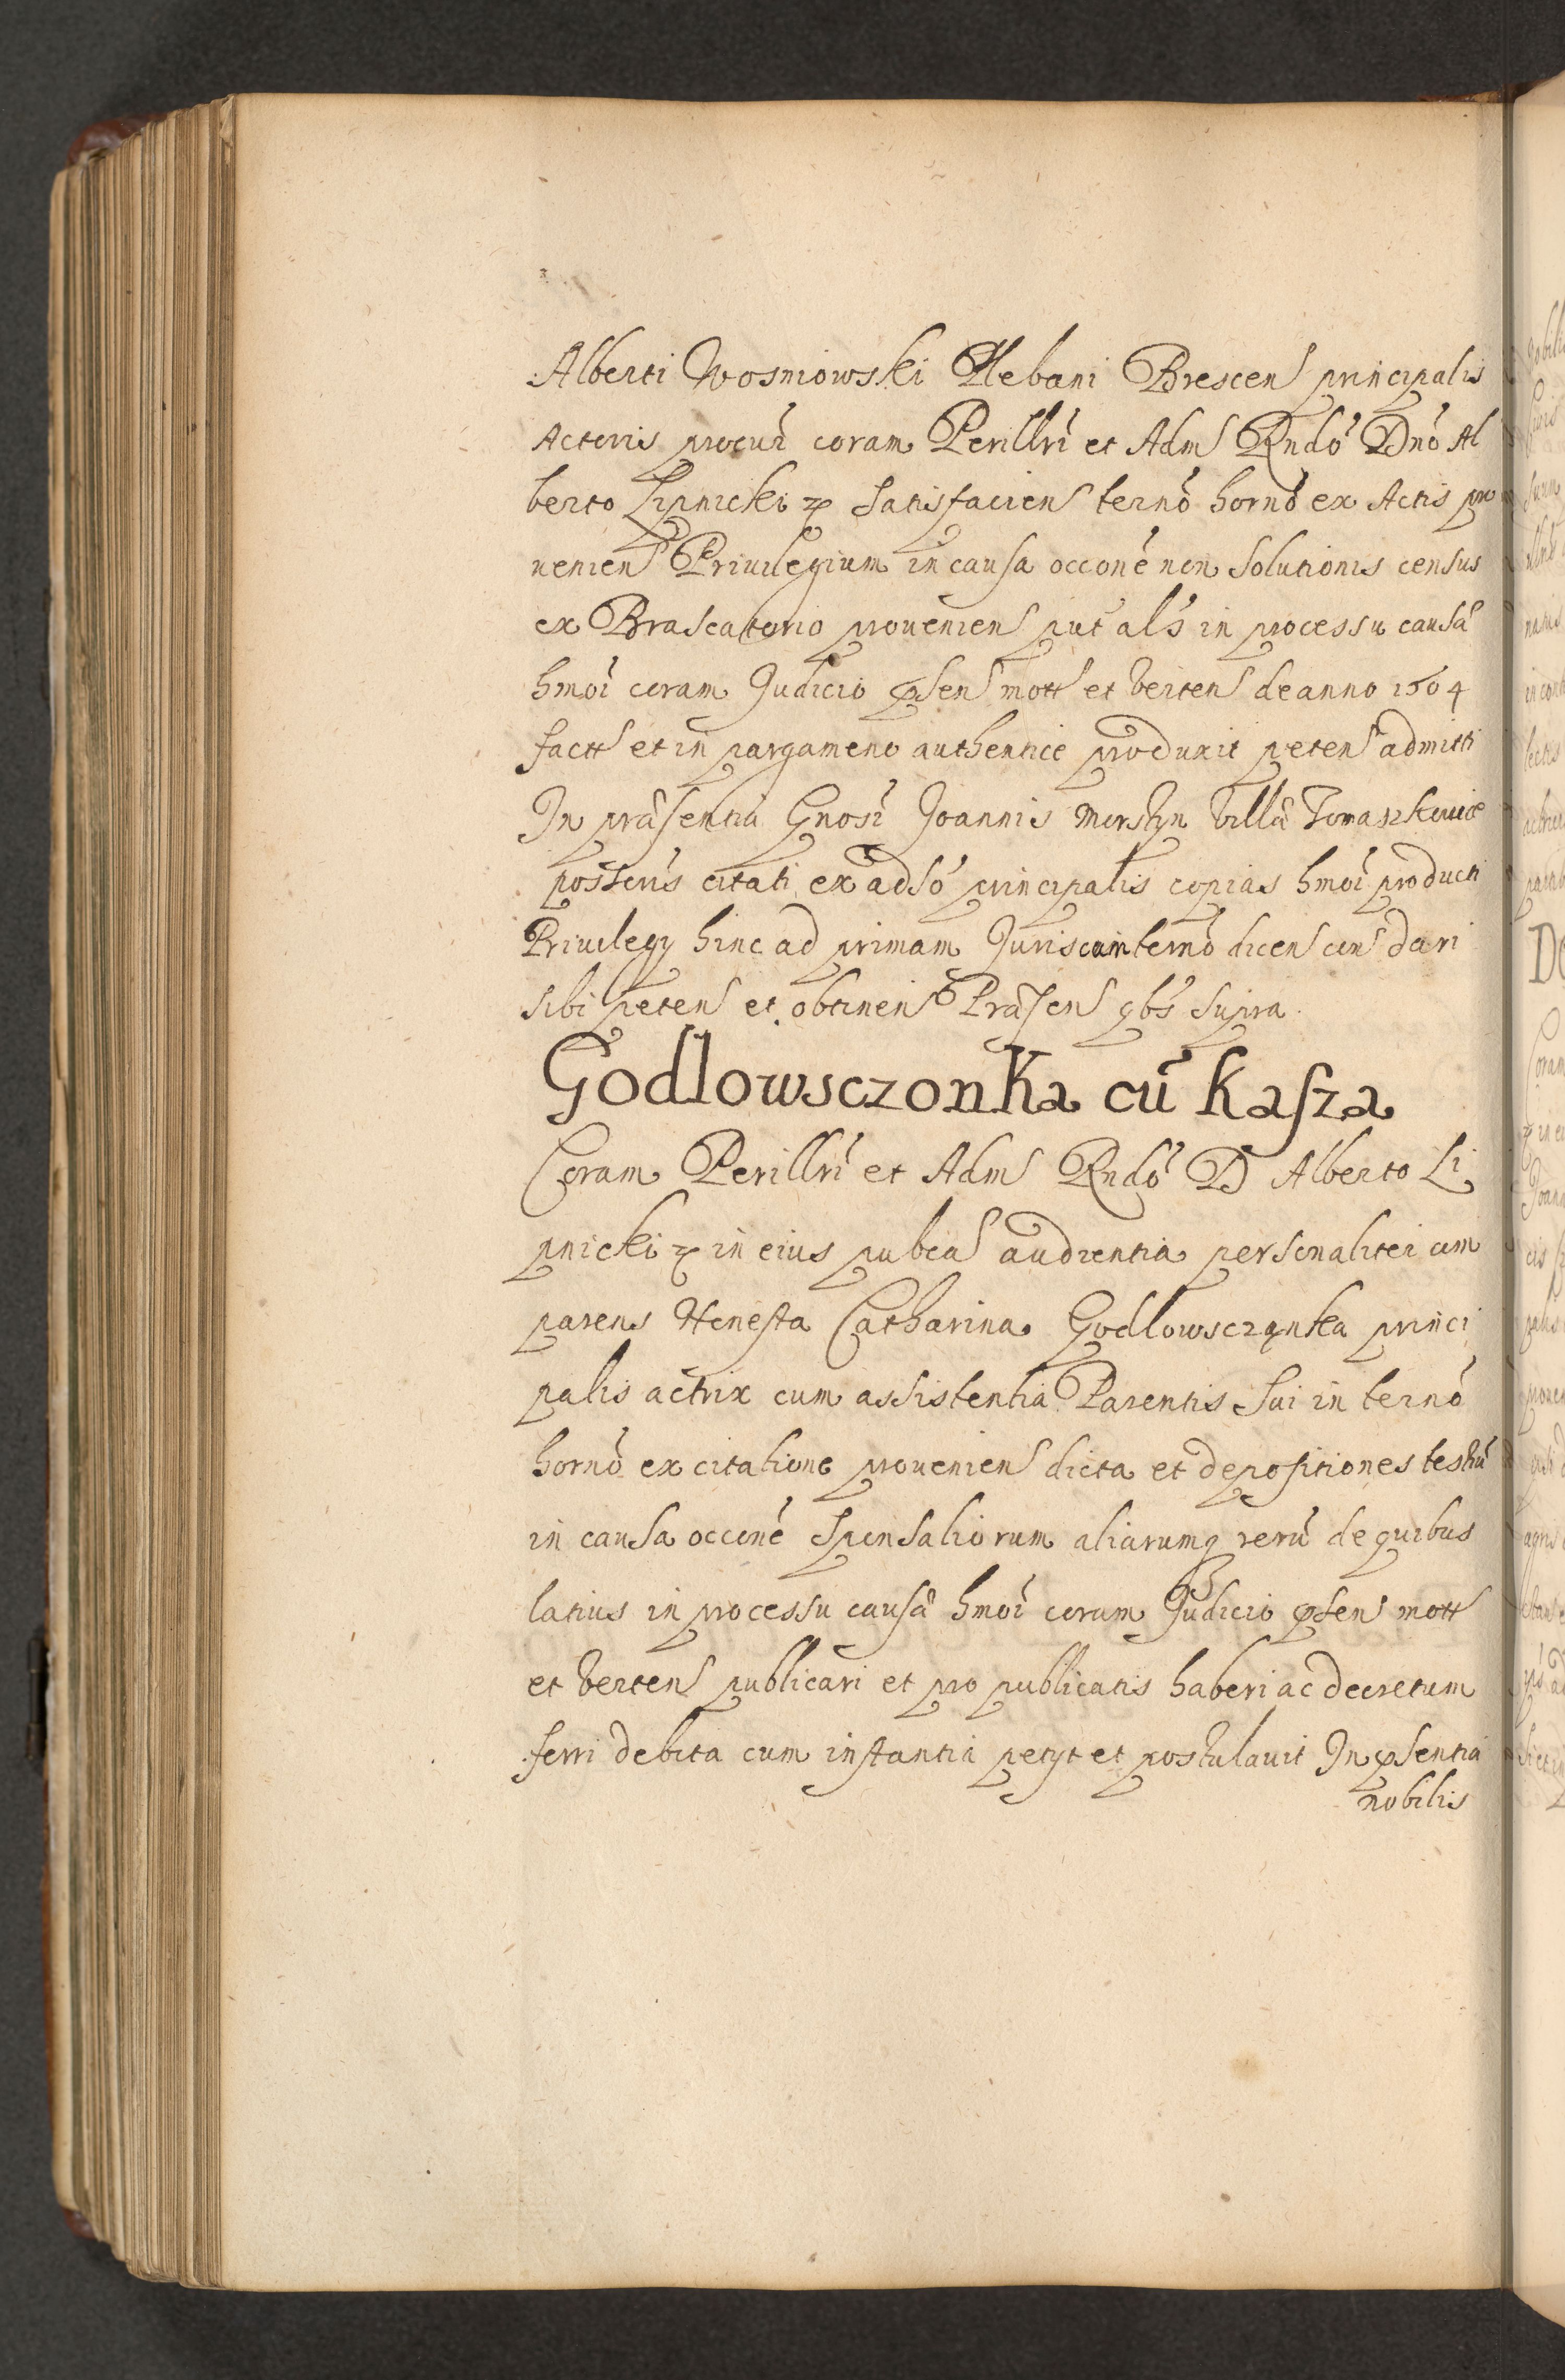 Alberti Wosniowski Plebani Brescen principalis
Actoris procur̃ coram Perillri et Adm Rndo Dno Al
berto Lipnicki satisfacien termo horno ex Actis pro
uenien Priuilegium in causa occone non solutionis census
ex Brascatorio prouenien put als in processu causæ
hmoi coram Judicio pnsen mott et verten de anno 1604
factt et in pargameno authentice produxit peten admitti
In præsentia Gnosi Joannis Morstyn villæ Tomaszkouice
possoris citati ex adso principalis copias hmoi producti
Priuilegy hinc ad primam Juris termo dicen dari
sibi peten et obtinen Præsen qbs supra
Godlowsczonka cũ Kasza
Coram Perillri et Adm Rndo D Alberto Li
pnicki in eius pubca audientia personaliter com
parens Honesta Catharina Godlowsczonka princi
palis actrix cum assistentia Parentis sui in termo
horno ex citatione prouenien dicta et depositiones testiũ
in causa occone sponsaliorum aliarumq rerũ de quibus
latius in processu causæ hmoi coram Judicio pnsen mott
et verten publicari et pro publicatis haberi ac decretum
ferri debita cum instantia petyt et postulauit In pnsentia
nobilis